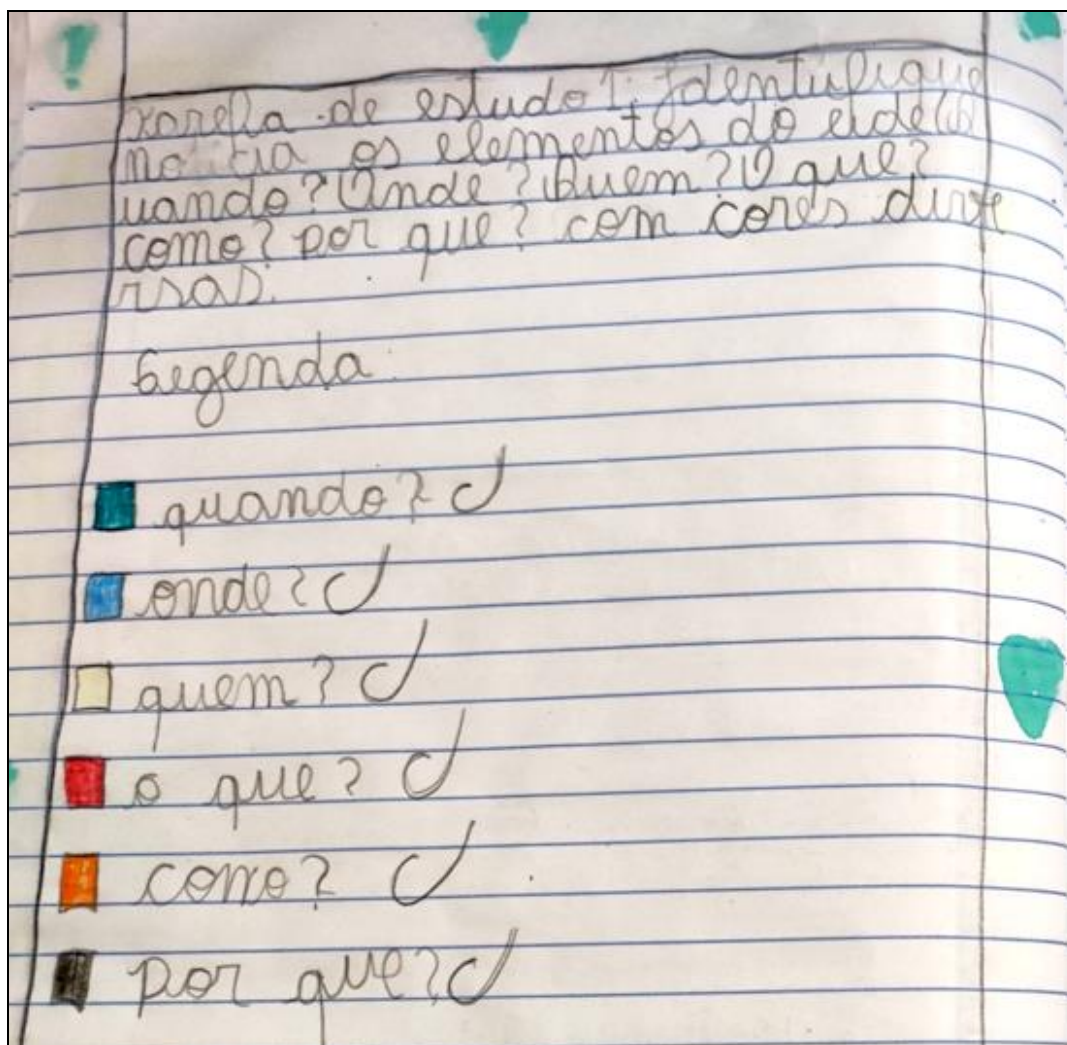 xarefa de estudo 1: Identufique
noticia os elementos do lide (Q
uando? Onde? Quem? O que?
como? por que? com cores dive
rsas.
Legenda.
quando?
onde?
quem?
o que?
como?
por que?